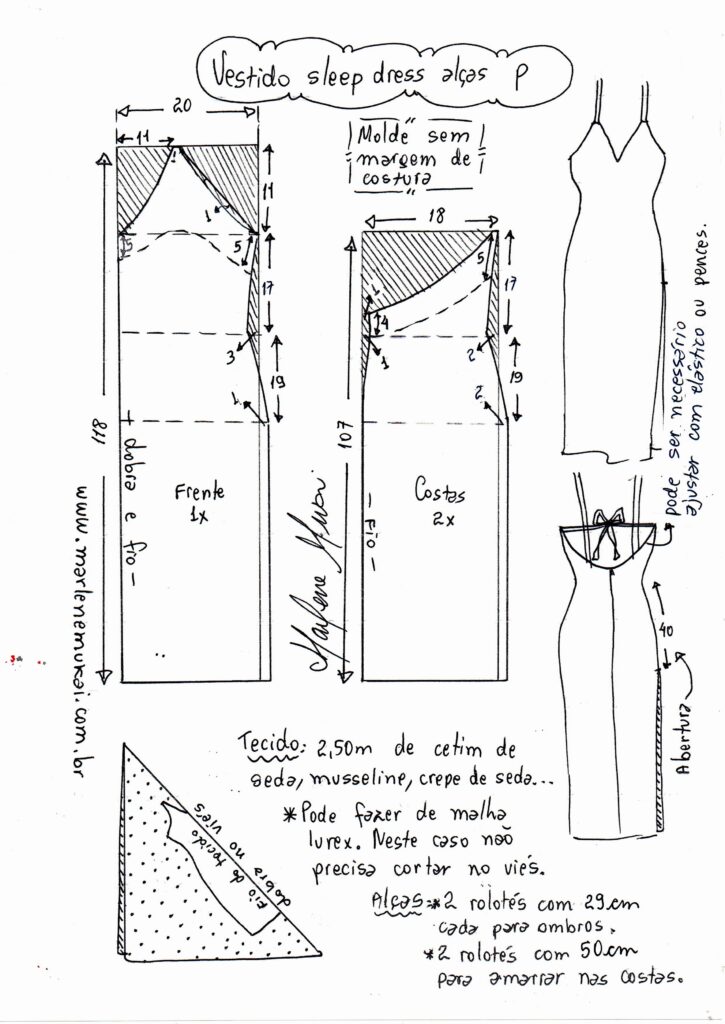 Vestido sleep dress alças P
20
11
Molde sem
margem de
costura
11
1
5
5
17
3
19
1
118
+ dobra e fio -
Frente
1x
www.marlenemukai.com.br
Marlene Mukai
18
5
17
1
4
1
2
19
2
107
- Fio -
Costas
2x
pode ser necessário
ajustar com elástico ou pences.
40
Abertura
Tecido: 2,50m de cetim de
seda, musseline, crepe de seda...
*Pode fazer de malha
lurex. Neste caso não
precisa cortar no viés.
Alças:*2 rolotés com 29cm
cada para ombros.
*2 rolotés com 50cm
para amarrar nas costas.
dobra no viés
fio do tecido